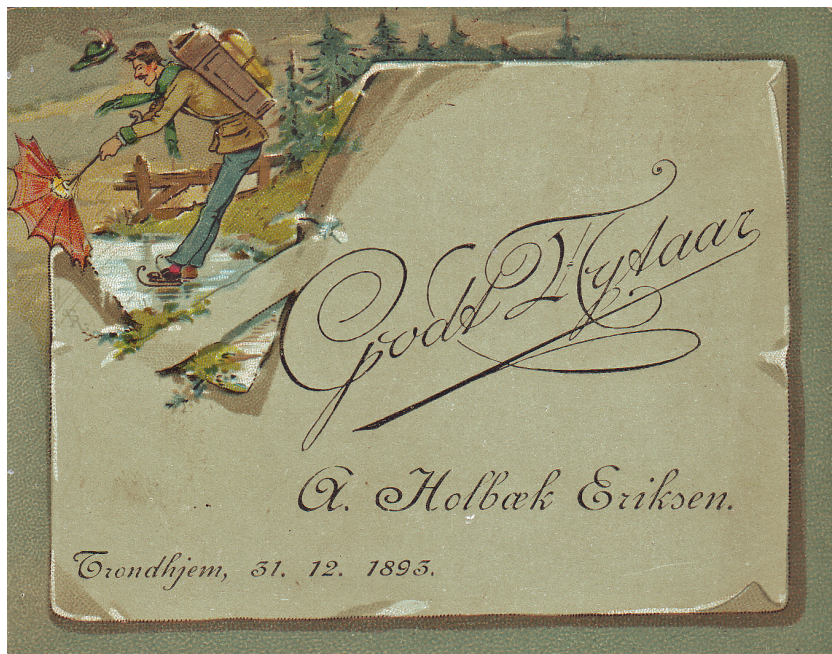 Godt Nytaar
A. Holbæk Eriksen.
Trondhjem, 31. 12. 1893.